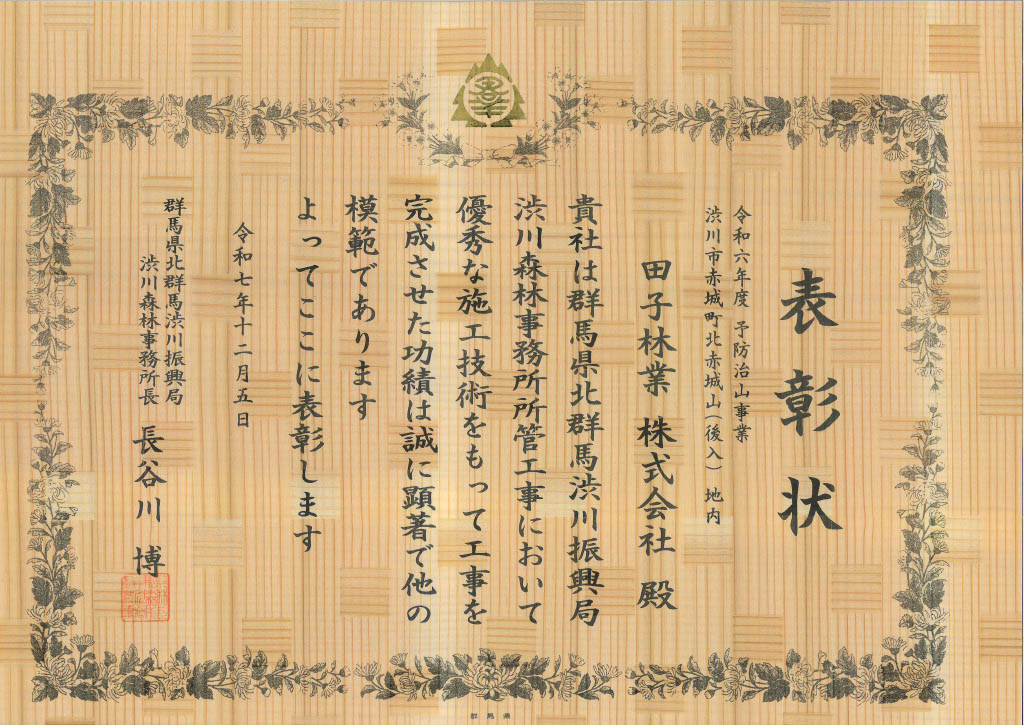 表彰状
令和六年度 予防治山事業
渋川市赤城町北赤城山（後入）地内
田子林業 株式会社 殿
貴社は群馬県北群馬渋川振興局
渋川森林事務所所管工事において
優秀な施工技術をもって工事を
完成させた功績は誠に顕著で他の
模範であります
よってここに表彰します
令和七年十二月五日
群馬県北群馬渋川振興局
渋川森林事務所長
長谷川 博
群馬県